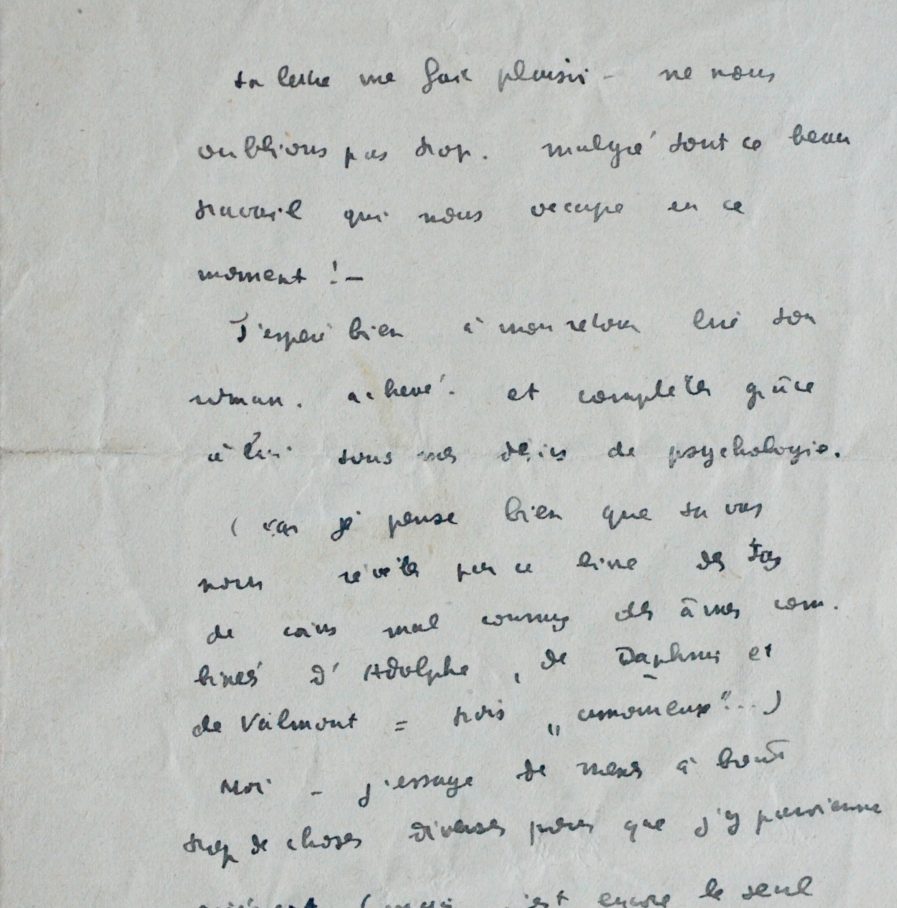 ta lettre me fait plaisir — ne nous
oublions pas trop. malgré tout ce beau
travail qui nous occupe en ce
moment ! —
J'espère bien à mon retour lire ton
roman. achevé. et compléter grâce
à lui tous mes désirs de psychologie.
(car je pense bien que tu vas
nous révéler par ce livre des tas
de coins mal connus des âmes com.
binés d'Adolphe, de Daphnis et
de Valmont = trois "amoureux"...)
Moi — j'essaye de mener à bout
trop de choses diverses pour que j'y parvienne
c'est encore le seul